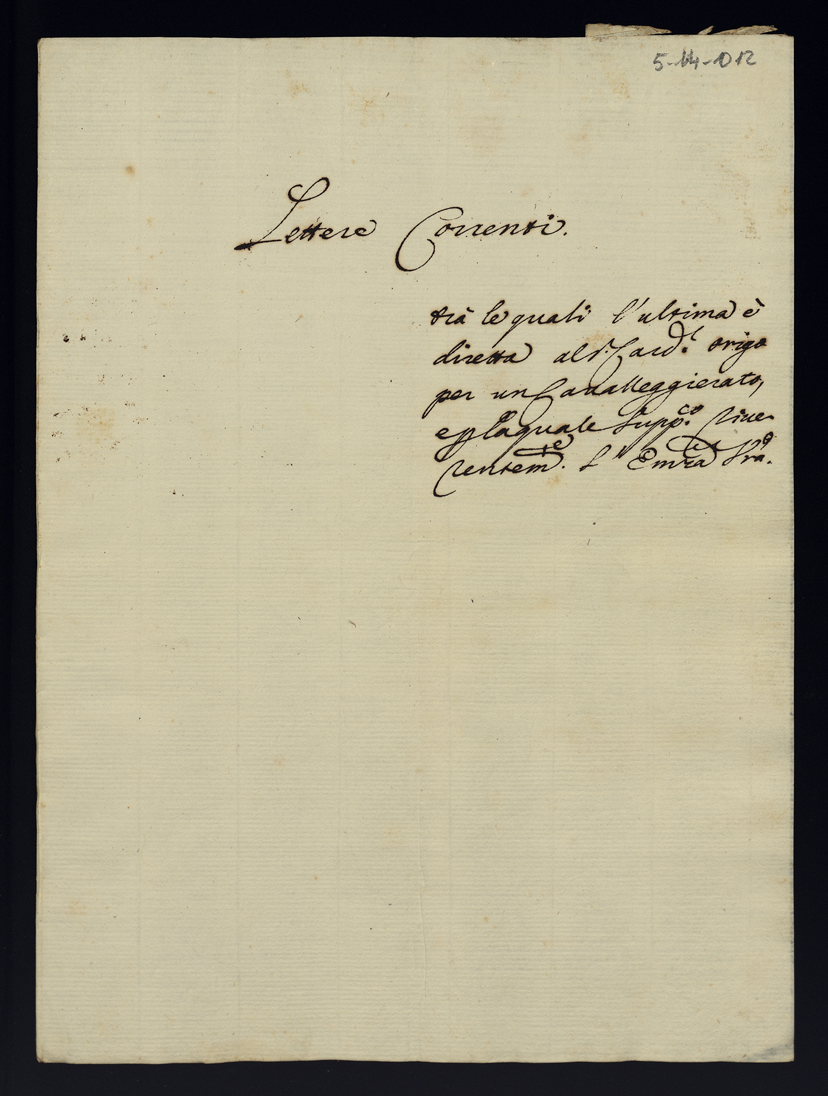 5-14-012
Lettere Correnti.
trà le quali l'ultima è
diretta al S.r Card.l Origo
per un Cavalleggierato,
e p laquale supp.co river-
rentem.te L' Em.za V.ra.